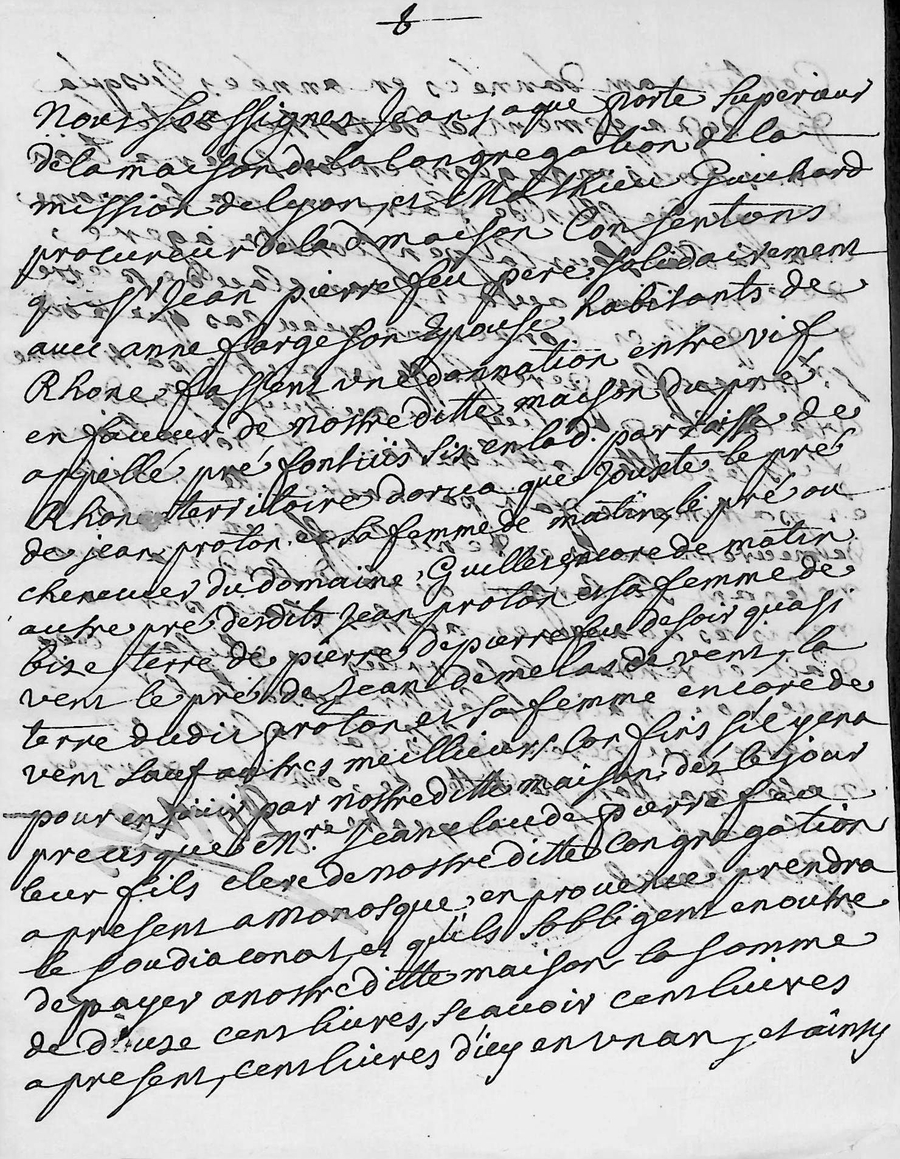 Nous soussignes Jean Jaque porte superieur
de la maison de la congregation de la
mission de lyon, et Mathieu Guichard
procureur de lad. maison consentons
que sr Jean pierrefeu pere, solidairement
avec anne farge son Epouse, habitants de
Rhone, fassent une donnation entre vif
en faveur de nostre ditte maison du pré
appellé pré fontüis sis en lad. parroisse de
Rhone territoire que jouste le pré
de jean proton et sa femme de matin, le pré ou
chenevier du domaine Guillet, encore de matin
autre pré desdits Jean proton et sa femme de
bize, terre de pierre depierrefeu de soir quasi
vent le pré de Jean demelas de vent, la
terre dudit proton et sa femme encore de
vent sauf autres meillieurs confins s'il y en a
pour en jouir par nostre ditte maison dés le jour
precis que Mre. Jean claude pierrefeu
leur fils clerc de nostre ditte congregation
a present a Monosque, en provence, prendra
le soudiaconat, et qu'ils s'obligent en outre
de payer a nostre ditte maison la somme
de douze cent livres, scavoir cent livres
a present, cent livres d'icy en un an, et ainsy